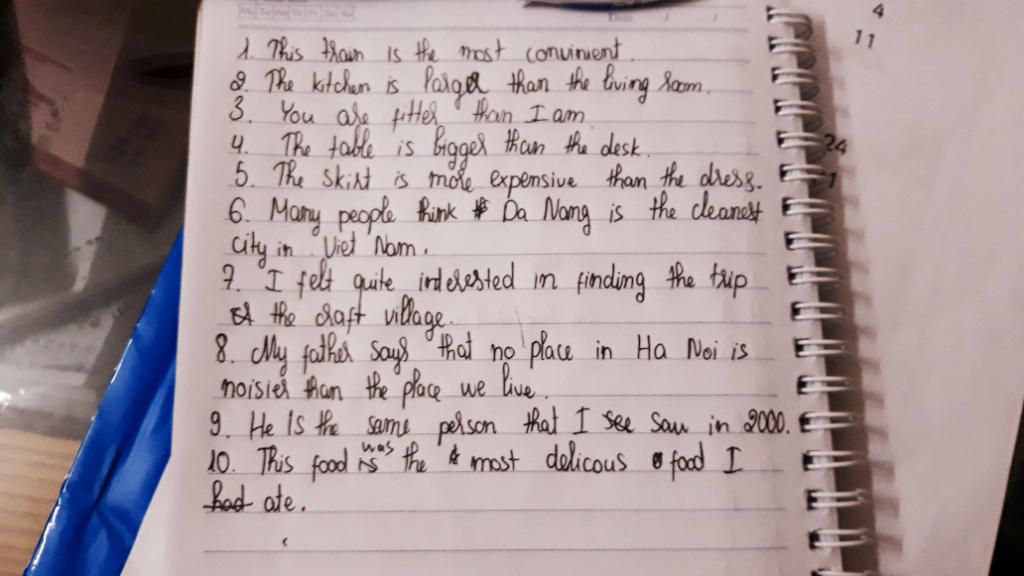 Mo Tu We Th Fr Sa Su
Date / /
4
11
24
1
1. This train is the most convinient.
2. The kitchen is larger than the living room.
3. You are fitter than I am
4. The table is bigger than the desk.
5. The skirt is more expensive than the dress.
6. Many people think Da Nang is the cleanest
city in Viet Nam.
7. I felt quite interested in finding the trip
the craft village.
8. My father says that no place in Ha Noi is
noisier than the place we live.
9. He Is the same person that I see saw in 2000.
10. This food is was the most delicous food I
had ate.